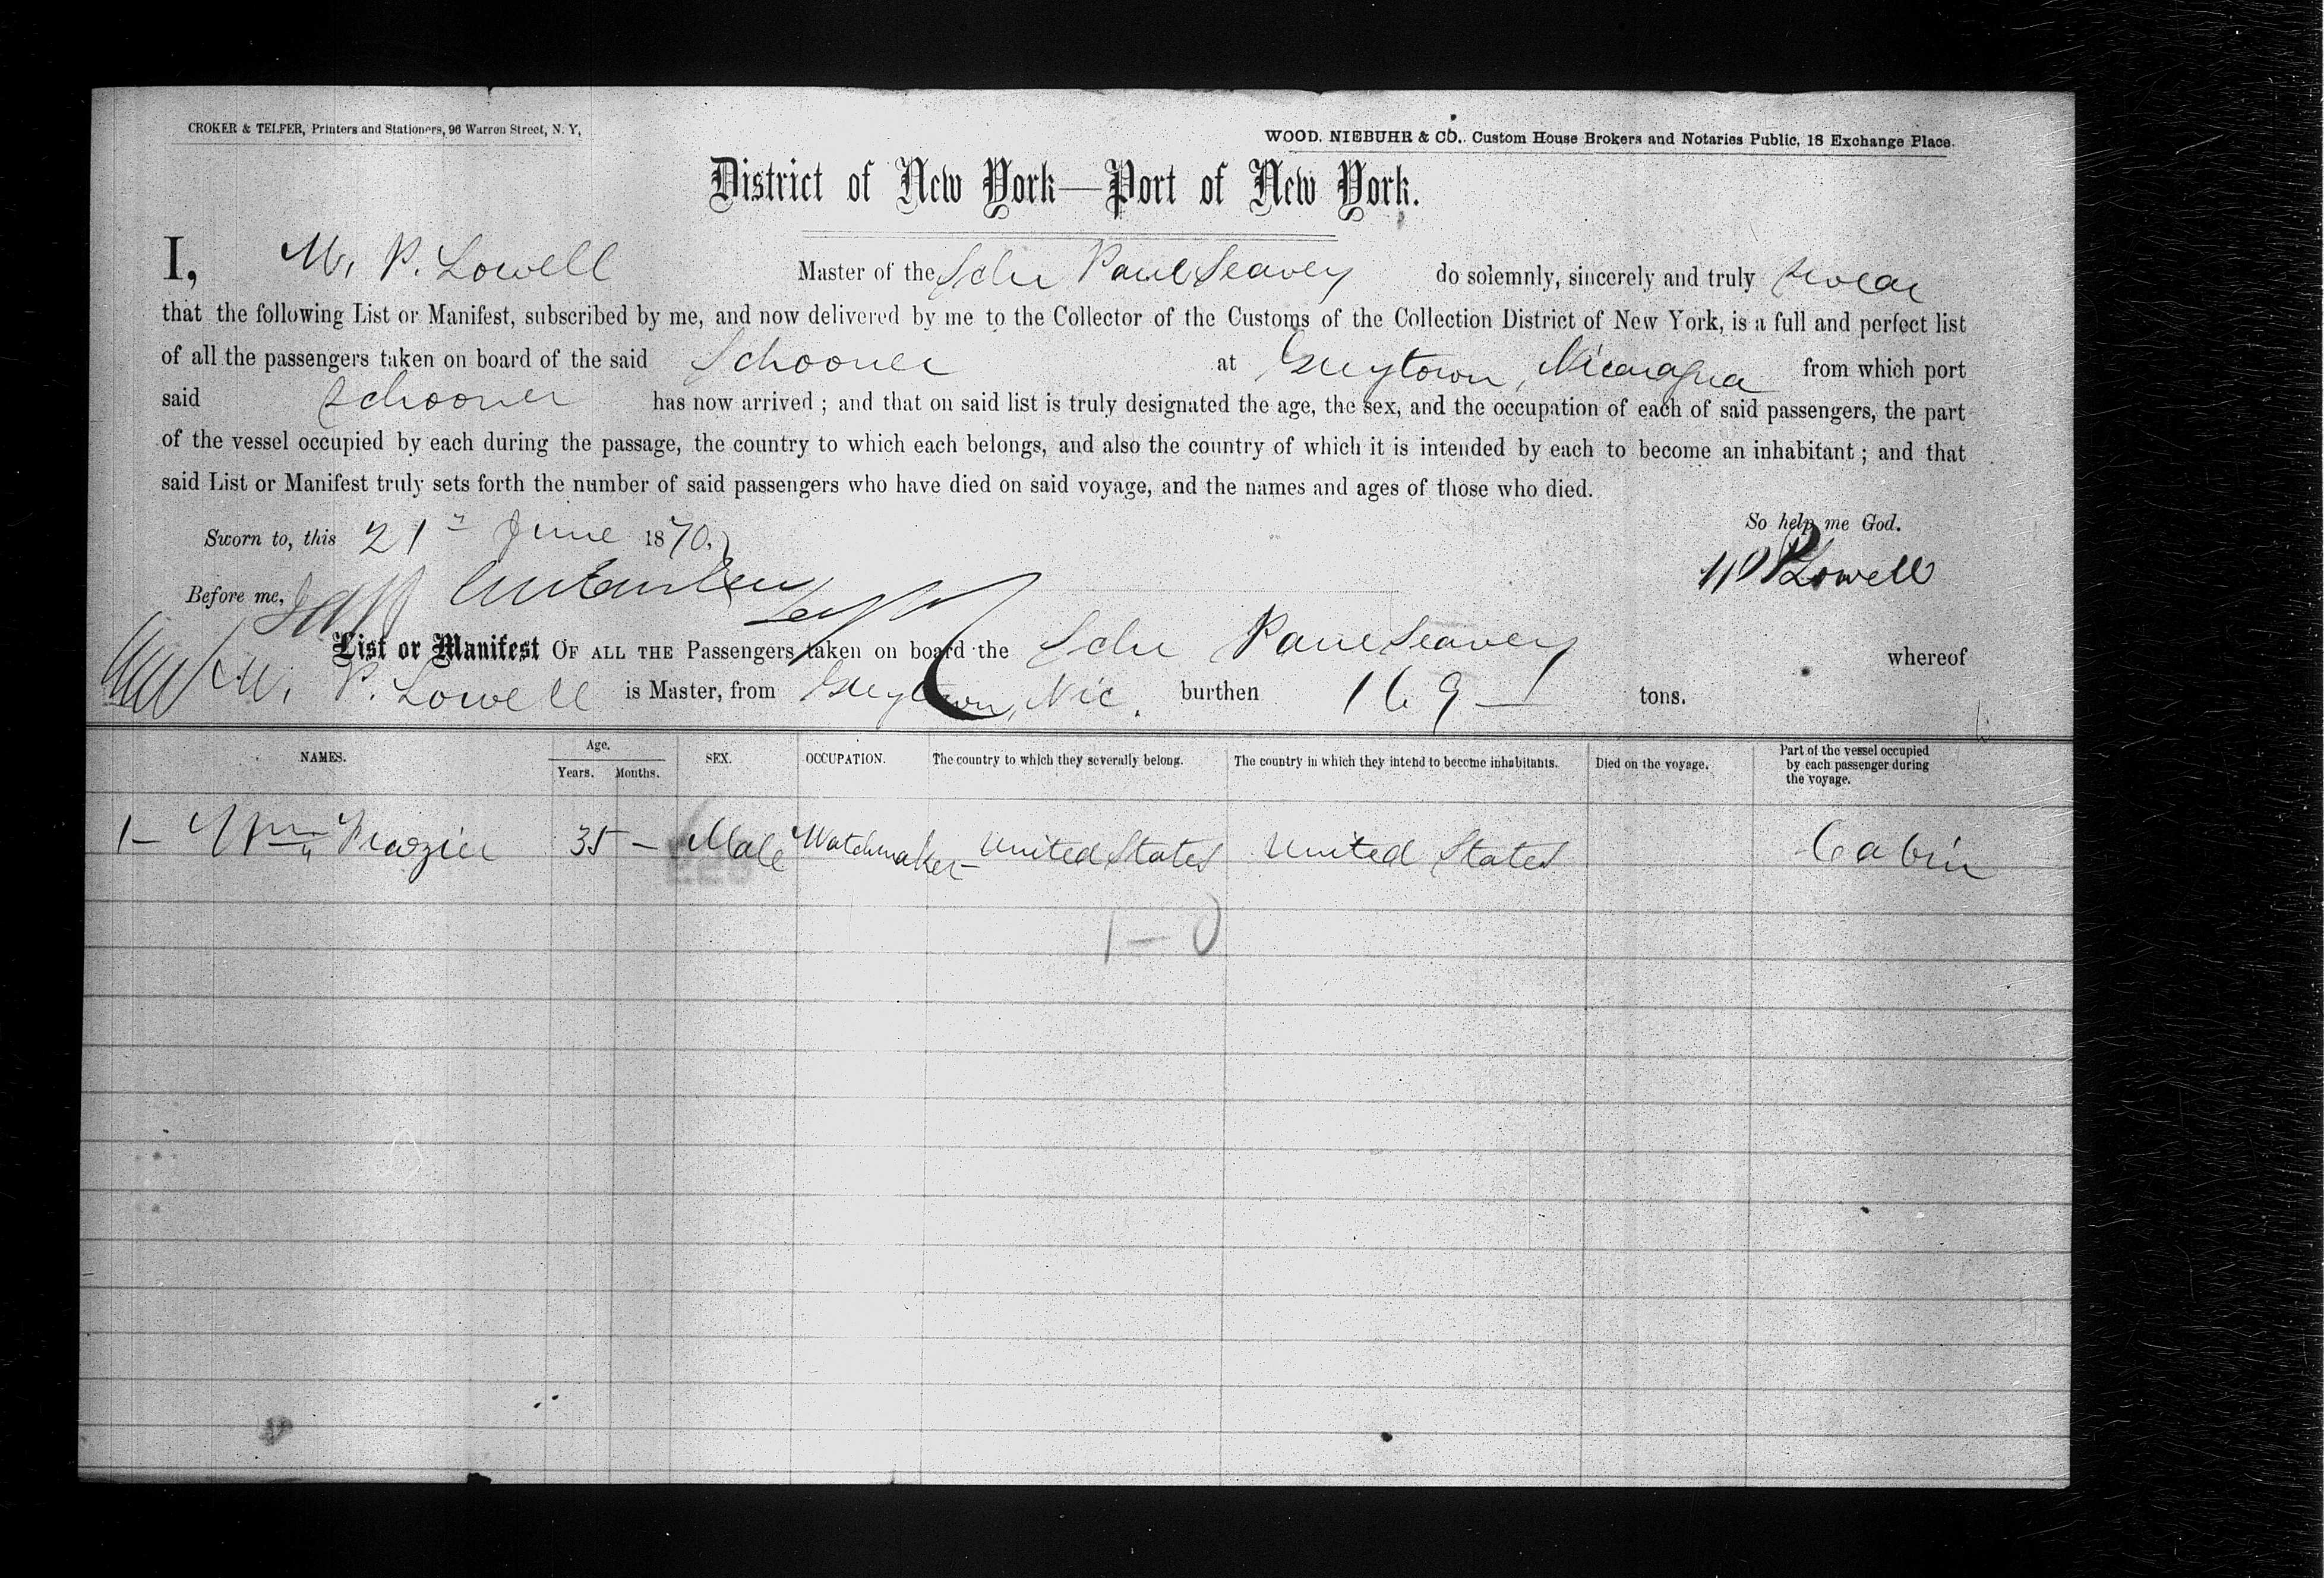 CROKER & TELFER, Printers and Stationers, 96 Warren Street, N. Y,
WOOD. NIEBUHR & CO.. Custom House Brokers and Notaries Public, 18 Exchange Place.
District of New York—Port of New York.
I, W. P. Lowell Master of the Schr Paul Seavey do solemnly, sincerely and truly swear
that the following List or Manifest, subscribed by me, and now delivered by me to the Collector of the Customs of the Collection District of New York, is a full and perfect list
of all the passengers taken on board of the said Schooner at Greytown, Nicaragua from which port
said Schooner has now arrived ; and that on said list is truly designated the age, the sex, and the occupation of each of said passengers, the part
of the vessel occupied by each during the passage, the country to which each belongs, and also the country of which it is intended by each to become an inhabitant ; and that
said List or Manifest truly sets forth the number of said passengers who have died on said voyage, and the names and ages of those who died.
So help me God.
Sworn to, this 21 June 1870.
W P Lowell
Before me,
List or Manifest OF ALL THE Passengers taken on board the Schr Paul Seavey whereof
W. P. Lowell is Master, from Greytown, Nic. burthen 169 tons.
NAMES. Age. Years. Months. SEX. OCCUPATION. The country to which they severally belong. The country in which they intend to become inhabitants. Died on the voyage. Part of the vessel occupied by each passenger during the voyage.
1 – Wm Frazier 35 – Male Watchmaker United States United States Cabin
1 – 0